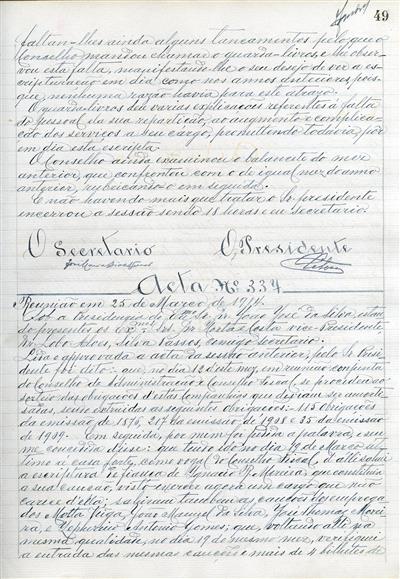 49
faltan-lhes ainda alguns lancamentos pelo que o
Conselho mandou chamar o guarda-livros, e lhe obser-
vou esta falta, manifestando-lhe o seu desejo de ver a es-
cripturação em dia como nos annos anteriores, pois
que, nenhuma razão havia para este atrazo.
O guarda-livros deu varias explicações referentes á falta
de pessoal da sua repartição, ao augmento e complica-
ção dos serviços a seu cargo, promettendo todavia, pôr
em dia esta escripta.
O Conselho ainda examinou o balancete do mez
anterior, que confrontou com o de igual mez do anno
anterior, rubricando-o em seguida.
E não havendo mais que tratar o Sr. presidente
encerrou a sessão sendo 18 horas e eu secretario.
O Secretario O Presidente
Acta Nº 334
Reunião em 25 de Março de 1914.
Sob a Presidencia do Exmo. Sr. João José da Silva, estan-
do presentes os Exmos. Srs. Costa vice-Presidente,
Lobo Alves, Silva Passos, comigo secretario.
Lida e approvada a acta da sessão anterior, pelo Sr. Presi-
dente foi dito: que no dia 12 d'este mez, em reunião conjuncta
do Conselho de Administração e Conselho Fiscal, se procedeu ao
sorteio das obrigações d'estas Companhias que deviam ser amorti-
sadas, sendo extrahidas as seguintes obrigações: 115 obrigações
da emissão de 1876, 217 da emissão de 1908 e 35 da emissão
de 1909. Em seguida, por mim foi pedida a palavra, e sen-
do-me concedida disse: que tendo ido no dia 9 de Março ul-
timo á casa forte, como vogal do Conselho Fiscal, d'alli sahiu
a escriptura de fiança de Ignacio F. Moreira que constituia
a sua caução, visto exercer agora um cargo que não
carece d'ella; sahiram tambem as cauções do empregado
Motta Veiga, João Manoel da Silva, José Thomaz Morei-
ra, e Antonio Gomes; que, voltando alli na
mesma qualidade, no dia 19 do mesmo mez, verifiquei
a entrada das mesmas cauções e mais de 4 bilhetes de